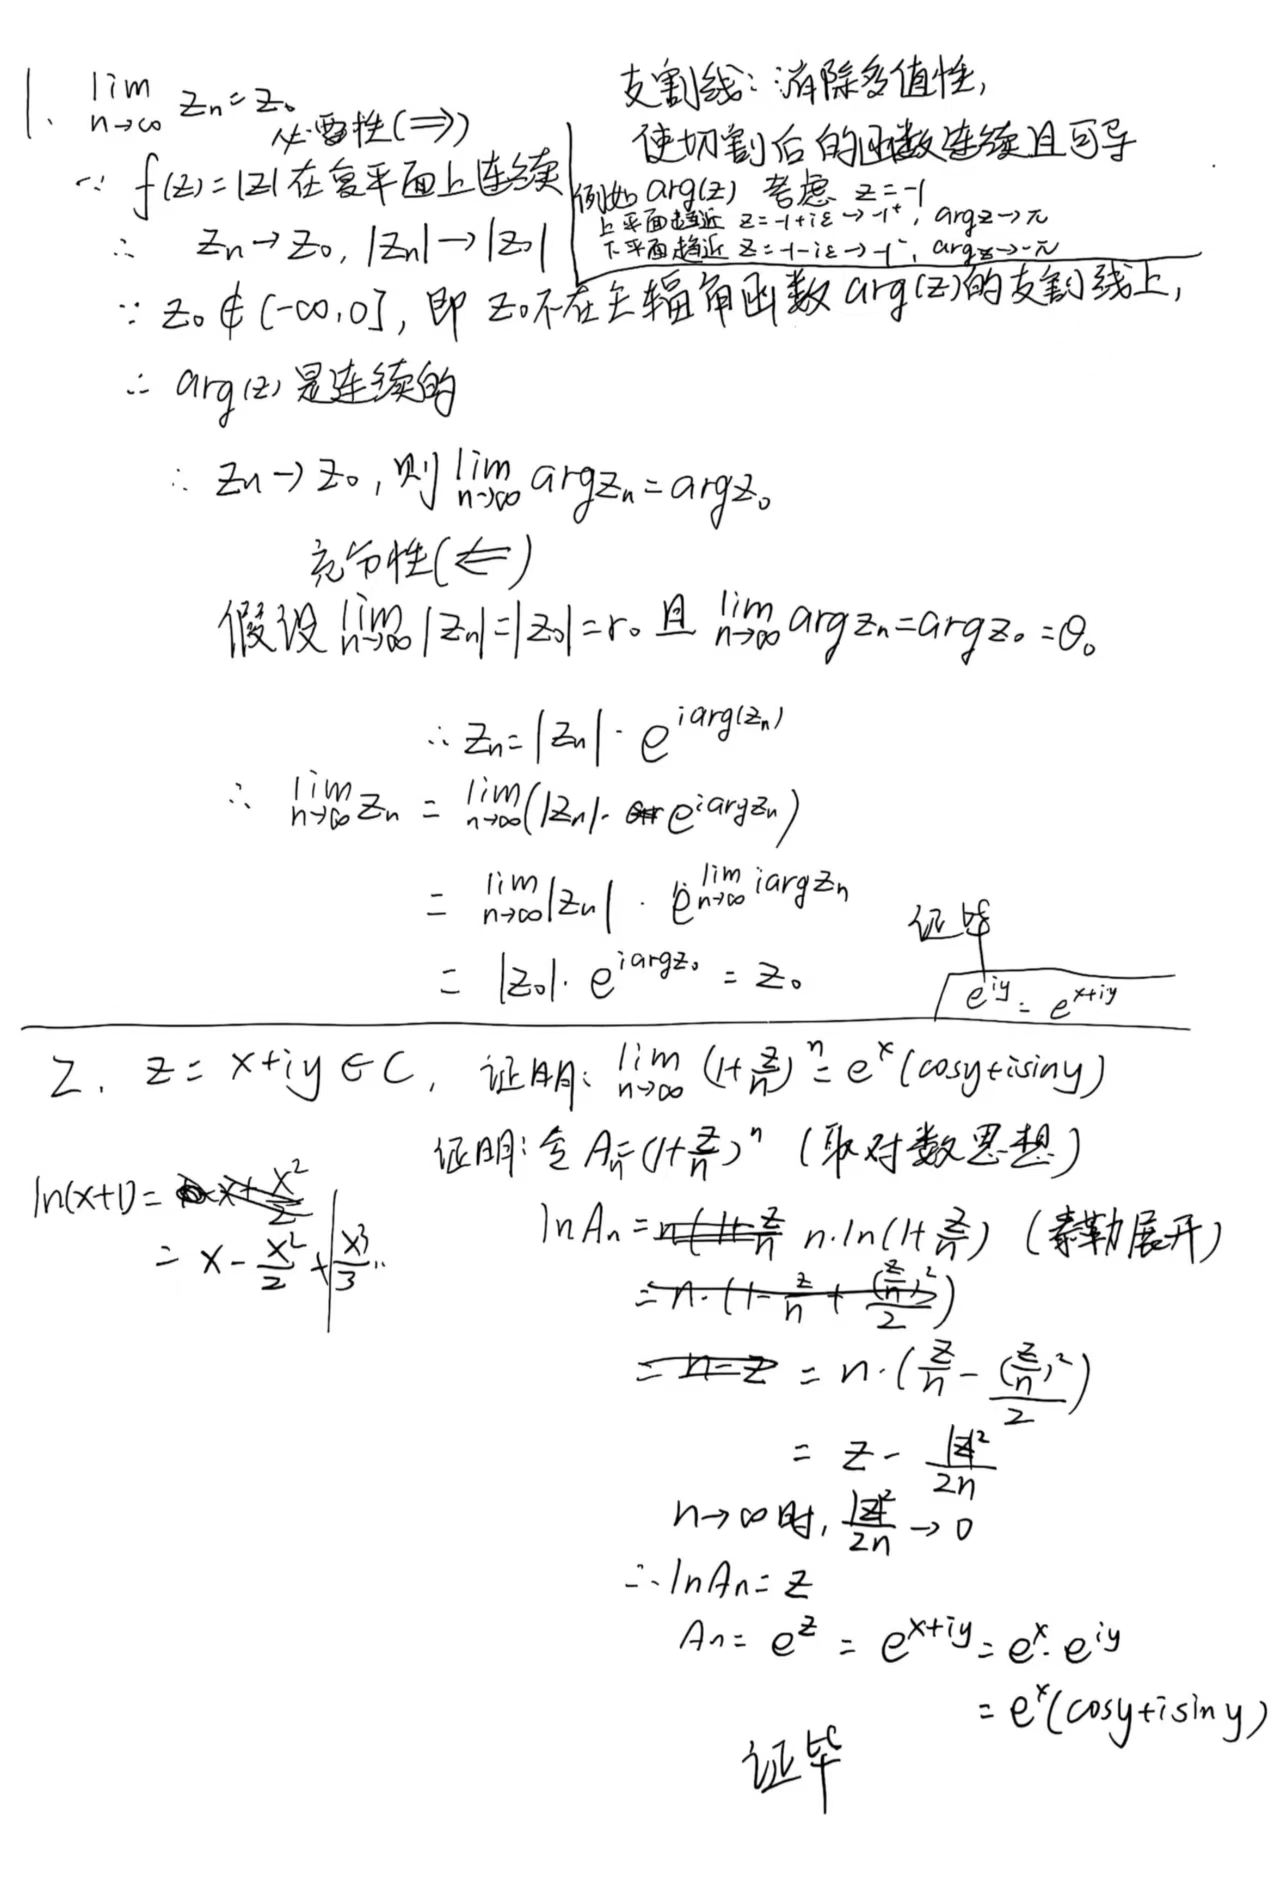 1. lim n→∞ zₙ = z₀
必要性(⇒)
∵ f(z)=|z|在复平面上连续
∴ zₙ→z₀, |zₙ|→|z₀|
支割线：消除多值性,
使切割后的函数连续且可导
例如 arg(z) 考虑 z=-1
上平面趋近 z=-1+iε→-1⁺, argz→π
下平面趋近 z=-1-iε→-1⁻, argz→-π
∵ z₀∉(-∞,0], 即 z₀不在主辐角函数 arg(z)的支割线上,
∴ arg(z) 是连续的
∴ zₙ→z₀, 则 lim n→∞ argzₙ=argz₀
充分性(⇐)
假设 lim n→∞ |zₙ|=|z₀|=r₀ 且 lim n→∞ argzₙ=argz₀=θ₀
∴ zₙ=|zₙ|·e^{iarg(zₙ)}
∴ lim n→∞ zₙ = lim n→∞ (|zₙ|·e^{iargzₙ})
= lim n→∞ |zₙ| · e^{lim n→∞ iargzₙ}
= |z₀|·e^{iargz₀} = z₀
证毕
e^{iy} = e^{x+iy}
2. z=x+iy∈C, 证明: lim n→∞ (1+z/n)ⁿ=e^x(cosy+isiny)
证明: 令 Aₙ=(1+z/n)ⁿ (取对数思想)
ln(x+1)= x+x²/2
= x - x²/2 + x³/3 ..
lnAₙ = n(1+z/n n·ln(1+z/n) (泰勒展开)
= n·(1-z/n + (z/n)²/2)
= n-z = n·(z/n - (z/n)²/2)
= z - |z|²/2n
n→∞时, |z|²/2n → 0
∴ lnAₙ = z
Aₙ= e^z = e^{x+iy} = e^x·e^{iy}
= e^x(cosy+isiny)
证毕